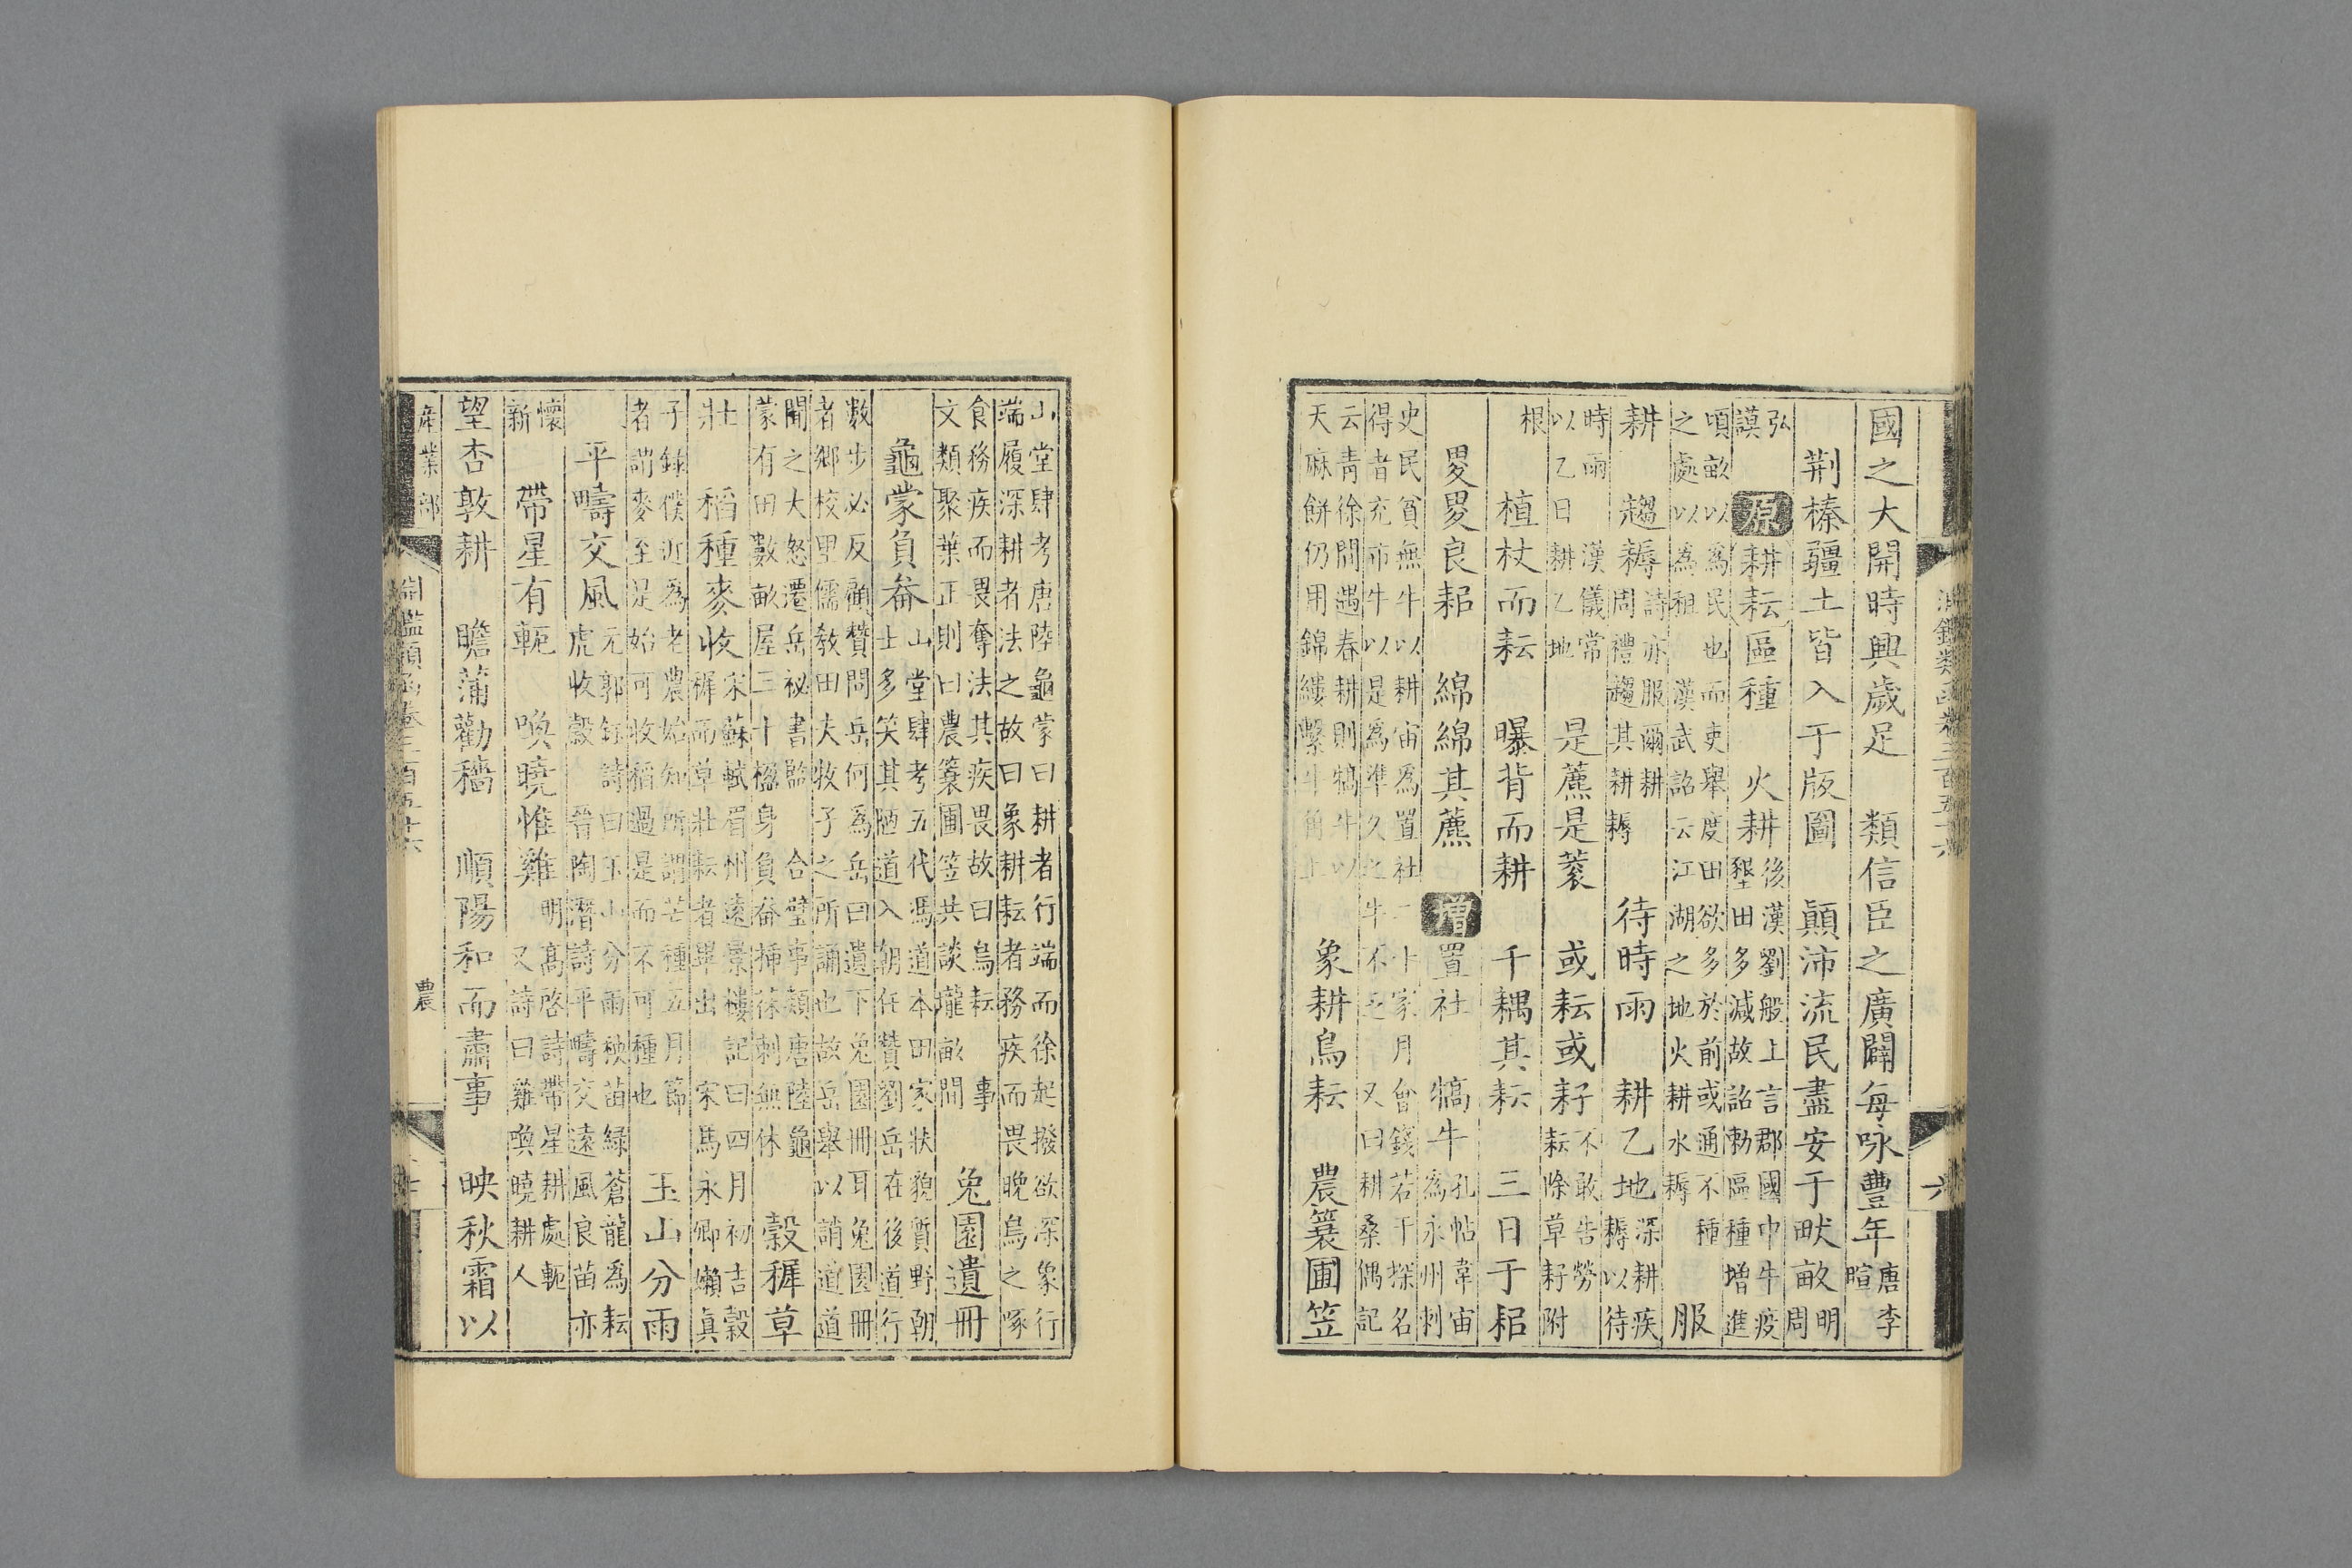 國之大開時興歲足　類信臣之廣闢每咏豐年唐李暄
荆榛疆土皆入于版圖　顚沛流民盡安于畎畝明周
弘謨　原耕耘區種　火耕後漢劉般上言郡國中牛疫墾田多減故詔勅區種增進
頃畝以爲民也而吏舉度田欲多於前或通不種之處以爲租　漢武詔云江湖之地火耕水耨　服
耕　趨耨詩亦服爾耕周禮趨其耕耨　待時雨　耕乙地深耕疾耨以待
時雨　漢儀常以乙日耕乙地　是藨是蔉　或耘或耔不敢告勞耘除草耔附
根　植杖而耘　曝背而耕　千耦其耘　三日于耜
畟畟良耜　綿綿其藨　增置社　犒牛孔帖韋宙爲永州刺
史民貧無牛以耕宙爲置社二十家月會錢若干探名得者充市牛以是爲準久之牛不乏　又曰耕桑偶記
云青徐間遇春耕則犒牛以天麻餅仍用錦縷繫牛角上　象耕鳥耘　農蓑圃笠
山堂肆考唐陸龜蒙曰耕者行端而徐起撥欲深象行端履深耕者法之故曰象耕耘者務疾而畏晚鳥之啄
食務疾而畏奪法其疾畏故曰鳥耘　事文類聚葉正則曰農蓑圃笠共談壠畝間　兔園遺冊
龜蒙負畚山堂肆考五代馮道本田家狀貌質野朝士多笑其陋道入朝任贊劉岳在後道行
數步必反顧贊問岳何爲岳曰遺下兔園冊耳兔園冊者鄉校里儒教田夫牧子之所誦也故岳舉以誚道道
聞之大怒遷岳祕書監　合璧事類唐陸龜蒙有田數畝屋三十楹身負畚揷茠刺無休　穀穉草
壯　稻種麥收宋蘇軾眉州遠景樓記曰四月初吉穀穉而草壯耘者畢出　宋馬永卿嬾真
子錄僕近爲老農始知所謂芒種五月節者謂麥至是始可收稻過是而不可種也　玉山分雨
平疇交風元郭鈺詩曰玉山分雨秧苗綠蒼龍爲耘虎收穀　晉陶潛詩平疇交遠風良苗亦
懷新　帶星有軛　喚曉惟雞明高啓詩帶星耕處軛　又詩曰雞喚曉耕人
望杏敦耕　瞻蒲勸穡　順陽和而肅事　映秋霜以
產業部　淵鑑類函卷三百五十六　農